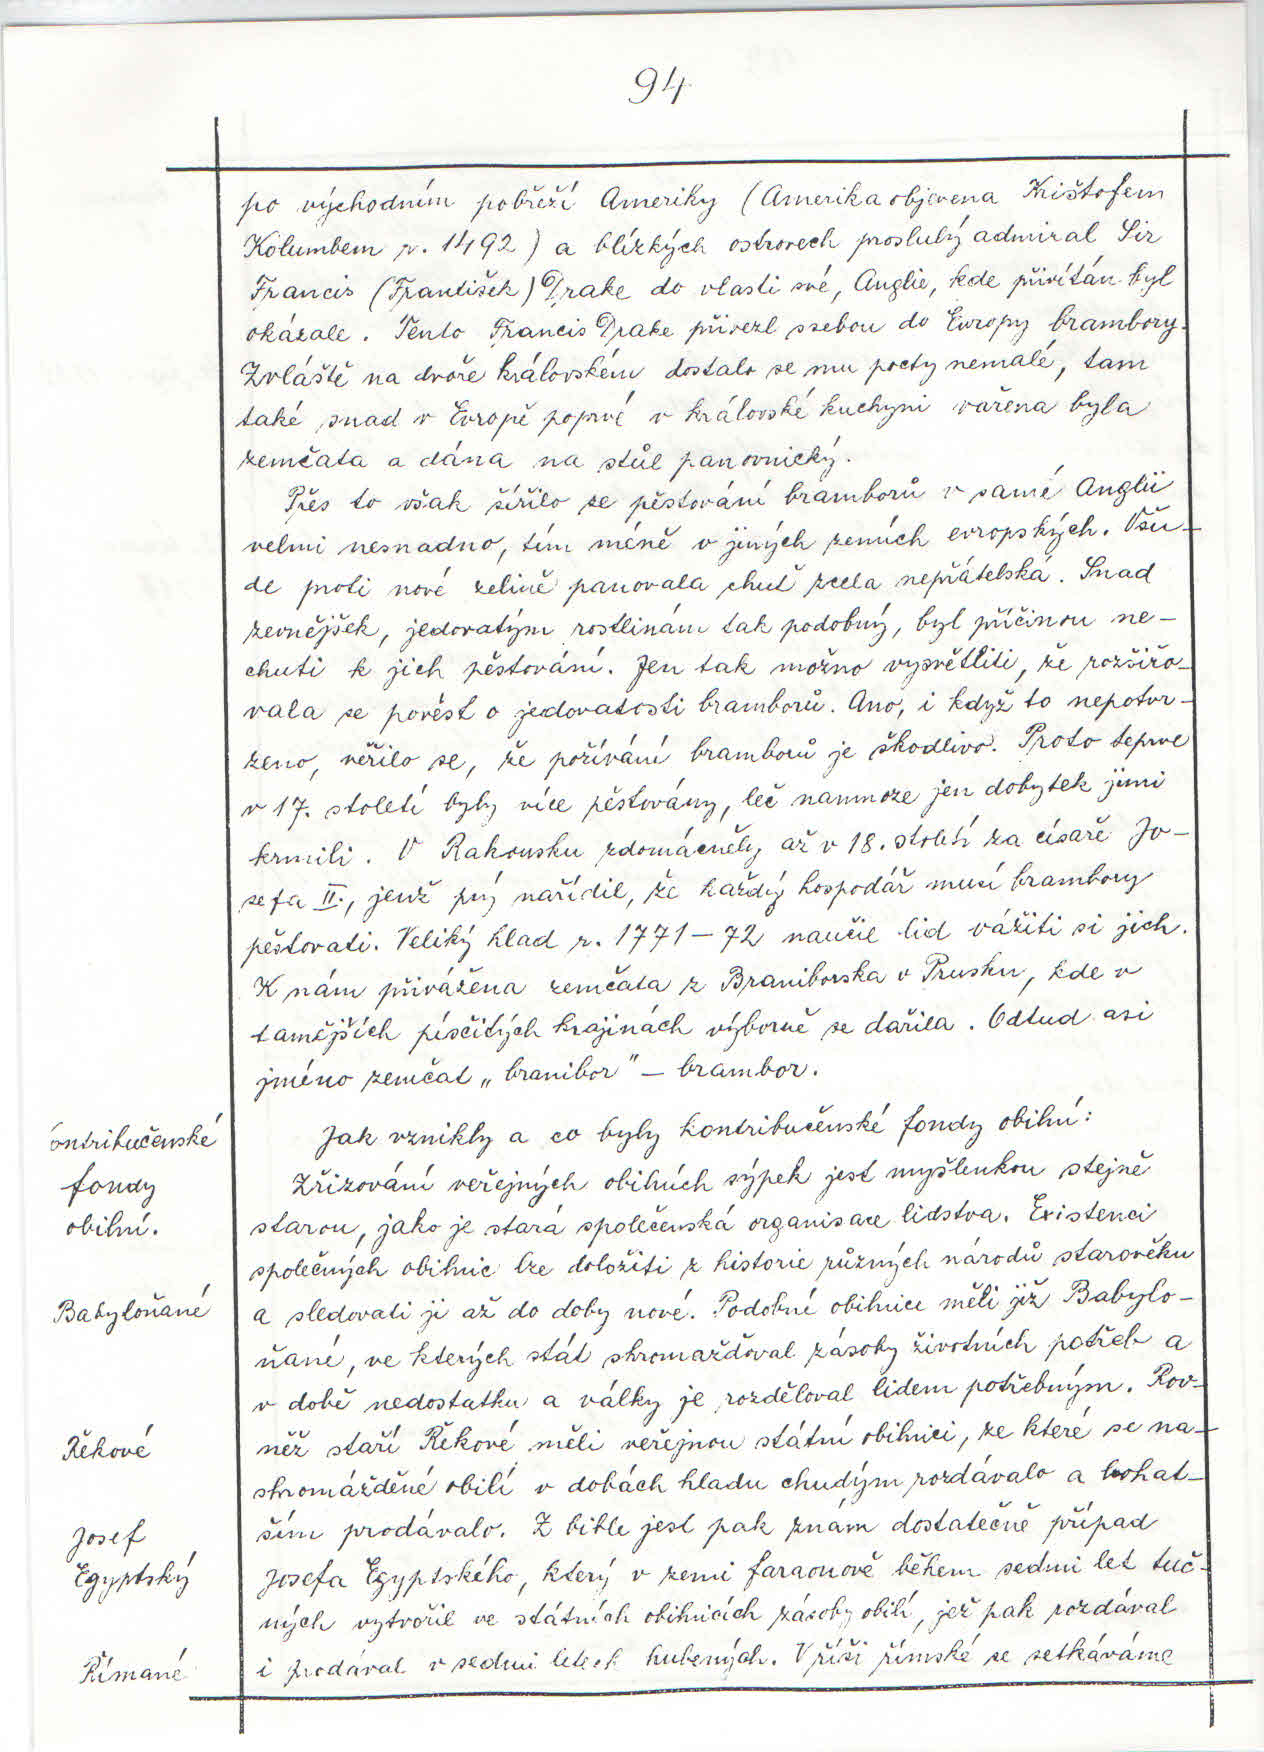 94
po východním pobřeží Ameriky (Amerika objevena Krištofem
Kolumbem r. 1492) a blízkých ostrovech proslulý admiral Sir
Francis (František) Drake do vlasti své, Anglie, kde přivítán byl
okázale. Tento Francis Drake přivezl ssebou do Evropy brambory.
Zvláště na dvoře královském dostalo se mu pocty nemalé, tam
také snad v Evropě poprvé v královské kuchyni vařena byla
zemčata a dána na stůl panovnický.
Přes to však šířilo se pěstování bramborů v samé Anglii
velmi nesnadno, tím méně v jiných zemích evropských. Všu-
de proti nové zelině panovala chuť zcela nepřátelská. Snad
zevnějšek, jedovatým rostlinám tak podobný, byl příčinou ne-
chuti k jich pěstování. Jen tak možno vysvětliti, že rozšiřo-
vala se pověst o jedovatosti bramborů. Ano, i když to nepotvr-
zeno, věřilo se, že požívání bramborů je škodlivo. Proto teprve
v 17. století byly více pěstovány, leč namnoze jen dobytek jimi
krmili. V Rakousku zdomácněly až v 18. století za císaře Jo-
sefa II., jenž prý nařídil, že každý hospodář musí brambory
pěstovati. Veliký hlad r. 1771-72 naučil lid vážiti si jich.
K nám přivážena zemčata z Braniborska v Prusku, kde v
tamějších písčitých krajinách výborně se dařila. Odtud asi
jméno zemčat „branibor" - brambor.
ontribučenské
fondy
obilní.
Jak vznikly a co byly kontribučenské fondy obilní:
Zřizování veřejných obilních sýpek jest myšlenkou stejně
starou, jako je stará společenská organisace lidstva. Existenci
společných obilnic lze doložiti z historie různých národů starověku
Babyloňané
a sledovati ji až do doby nové. Podobné obilnice měli již Babylo-
ňané, ve kterých stát shromažďoval zásoby životních potřeb a
v době nedostatku a války je rozděloval lidem potřebným. Rov-
Řekové
něž staří Řekové měli veřejnou státní obilnici, ze které se na-
shromážděné obilí v dobách hladu chudým rozdávalo a bohat-
Josef
Egyptský
ším prodávalo. Z bible jest pak znám dostatečně případ
Josefa Egyptského, který v zemi faraonově během sedmi let tuč-
ných vytvořil ve státních obilnicích zásoby obilí, jež pak rozdával
Římané
i prodával v sedmi letech hubených. V říši římské se setkáváme